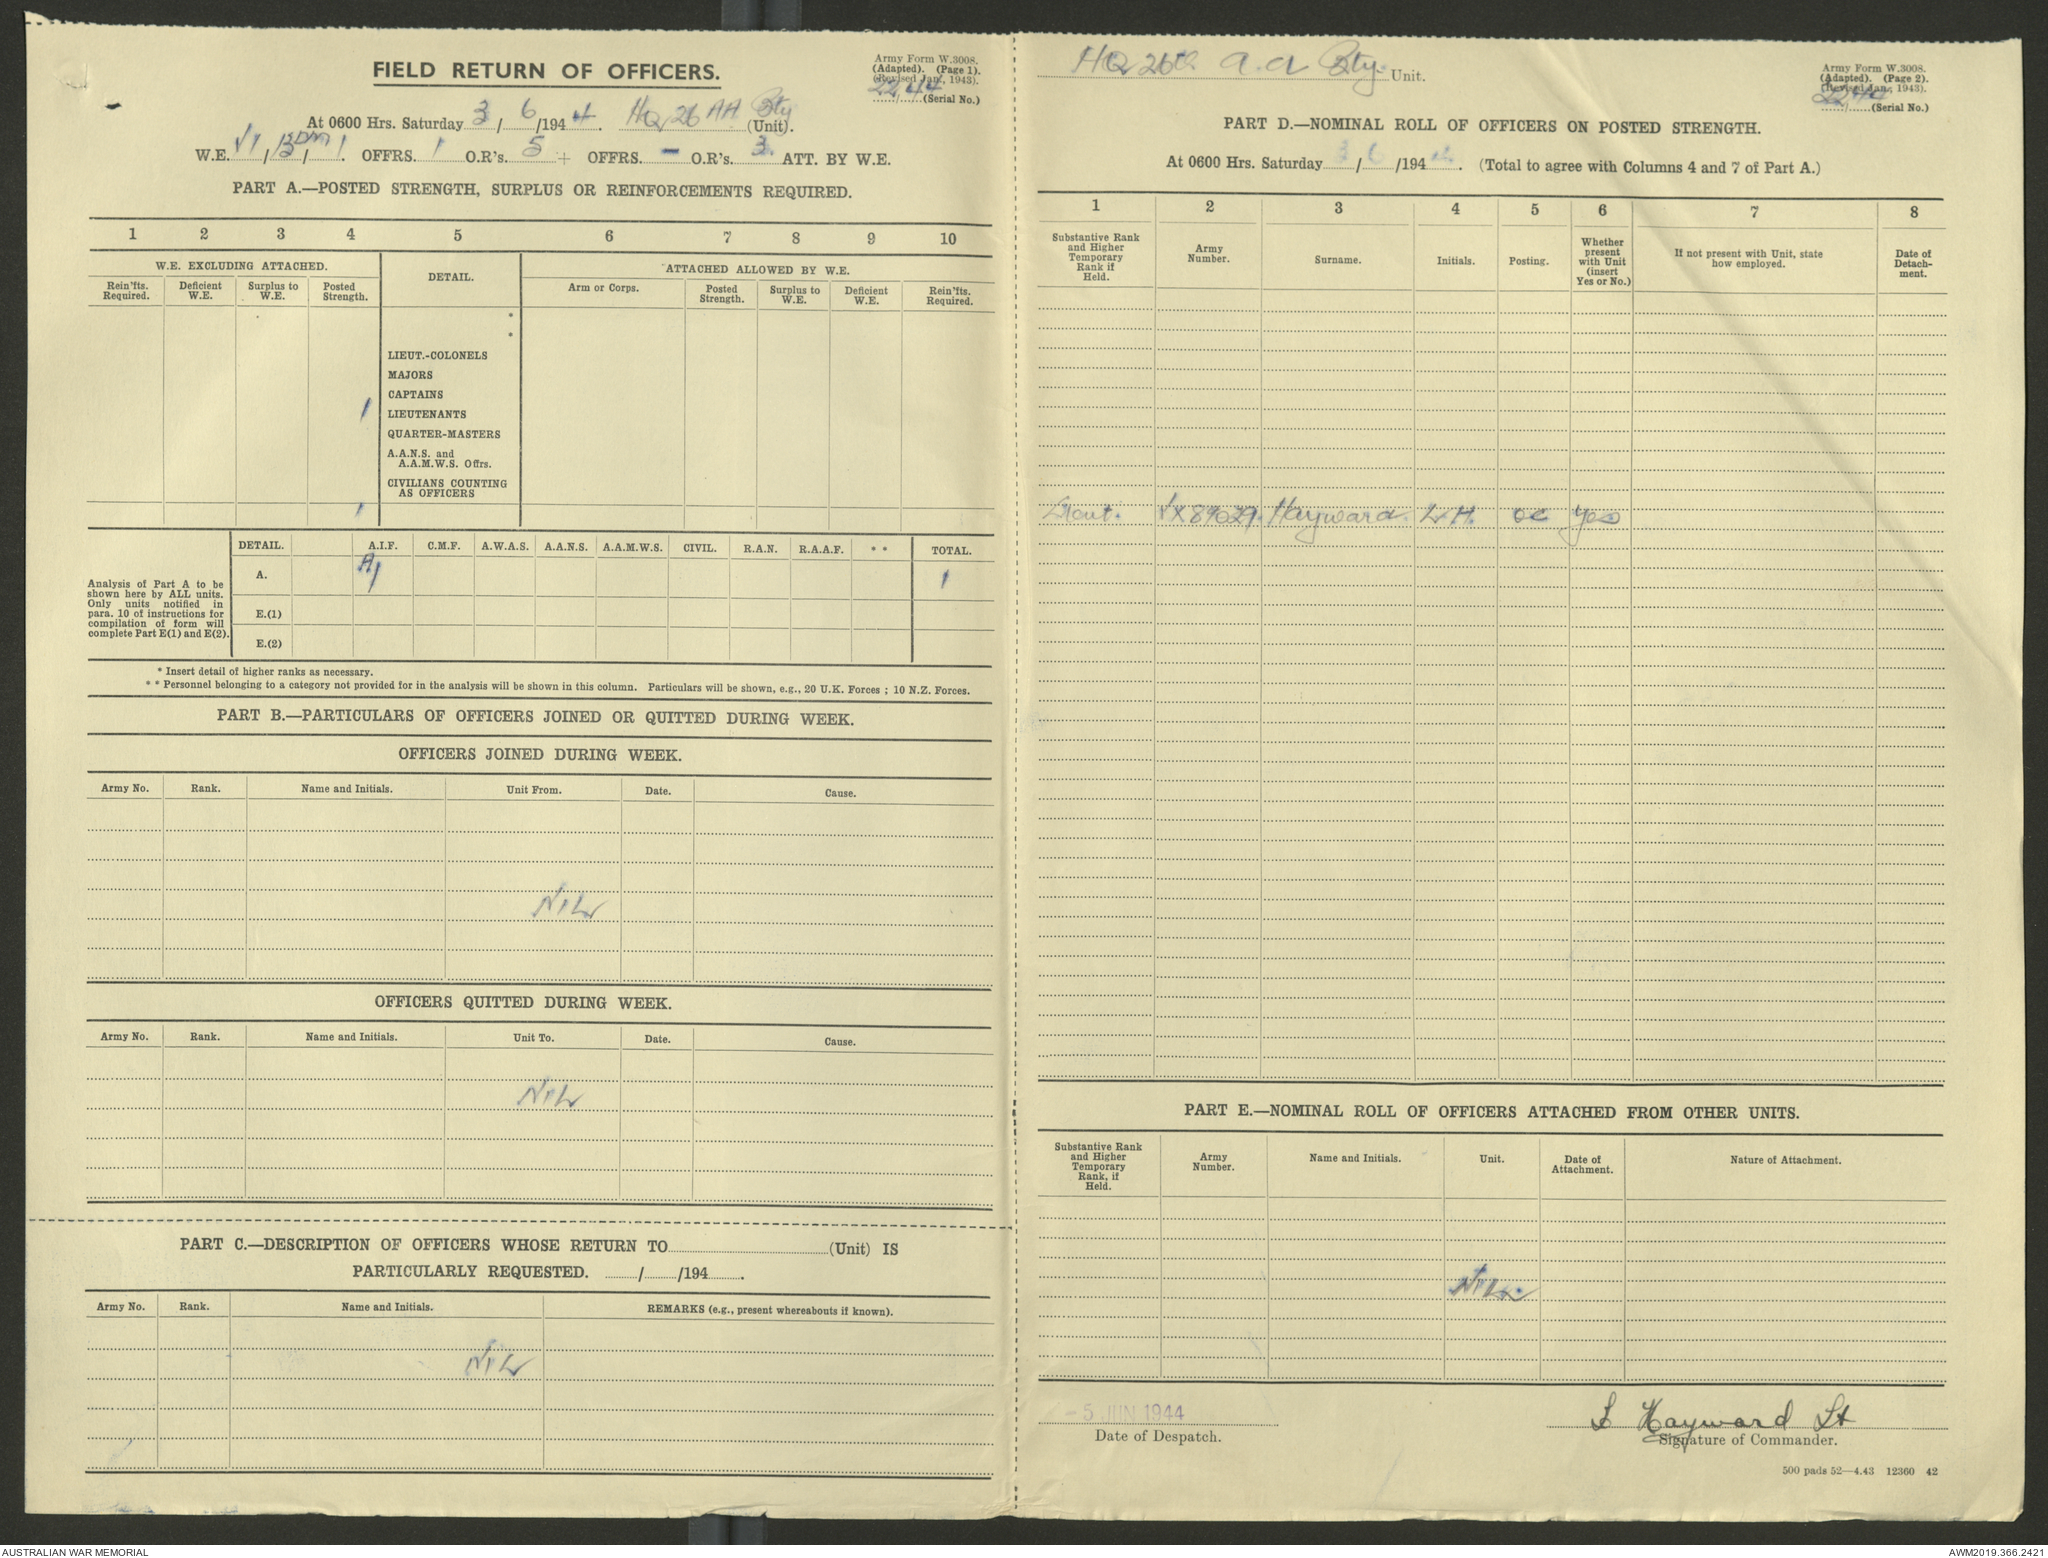 FIELD RETURN OF OFFICERS.
Army Form W.3008.
(Adapted). (Page 1).
(Revised Jan., 1943).
22/44 (Serial No.)
At 0600 Hrs. Saturday 3/6/1944. HQ 26 AA Bty (Unit).
W.E. VI/13DM/1. OFFRS. 1 O.R's. 5 + OFFRS. - O.R's. 3. ATT. BY W.E.
PART A.—POSTED STRENGTH, SURPLUS OR REINFORCEMENTS REQUIRED.
1 2 3 4 5 6 7 8 9 10
W.E. EXCLUDING ATTACHED. DETAIL. ATTACHED ALLOWED BY W.E.
Rein'fts. Required. Deficient W.E. Surplus to W.E. Posted Strength. Arm or Corps. Posted Strength. Surplus to W.E. Deficient W.E. Rein'fts. Required.
*
*
LIEUT.-COLONELS
MAJORS
CAPTAINS
1 LIEUTENANTS
QUARTER-MASTERS
A.A.N.S. and
A.A.M.W.S. Offrs.
CIVILIANS COUNTING
AS OFFICERS
1
DETAIL. A.I.F. C.M.F. A.W.A.S. A.A.N.S. A.A.M.W.S. CIVIL. R.A.N. R.A.A.F. * * TOTAL.
Analysis of Part A to be
shown here by ALL units.
Only units notified in
para. 10 of instructions for
compilation of form will
complete Part E(1) and E(2).
A. A1 1
E.(1)
E.(2)
* Insert detail of higher ranks as necessary.
* * Personnel belonging to a category not provided for in the analysis will be shown in this column. Particulars will be shown, e.g., 20 U.K. Forces ; 10 N.Z. Forces.
PART B.—PARTICULARS OF OFFICERS JOINED OR QUITTED DURING WEEK.
OFFICERS JOINED DURING WEEK.
Army No. Rank. Name and Initials. Unit From. Date. Cause.
NIL
OFFICERS QUITTED DURING WEEK.
Army No. Rank. Name and Initials. Unit To. Date. Cause.
NIL
PART C.—DESCRIPTION OF OFFICERS WHOSE RETURN TO (Unit) IS
PARTICULARLY REQUESTED. / /194 .
Army No. Rank. Name and Initials. REMARKS (e.g., present whereabouts if known).
NIL
HQ 26th A.A Bty. Unit.
Army Form W.3008.
(Adapted). (Page 2).
(Revised Jan., 1943).
22/44 (Serial No.)
PART D.—NOMINAL ROLL OF OFFICERS ON POSTED STRENGTH.
At 0600 Hrs. Saturday 3/6/1944. (Total to agree with Columns 4 and 7 of Part A.)
1 2 3 4 5 6 7 8
Substantive Rank and Higher Temporary Rank if Held. Army Number. Surname. Initials. Posting. Whether present with Unit (insert Yes or No.) If not present with Unit, state how employed. Date of Detach-ment.
Lieut. VX89029. Hayward. L.H. OC Yes
PART E.—NOMINAL ROLL OF OFFICERS ATTACHED FROM OTHER UNITS.
Substantive Rank and Higher Temporary Rank, if Held. Army Number. Name and Initials. Unit. Date of Attachment. Nature of Attachment.
NIL.
-5 JUN 1944
Date of Despatch.
L Hayward Lt
Signature of Commander.
500 pads 52—4.43 12360 42
AUSTRALIAN WAR MEMORIAL
AWM2019.366.2421